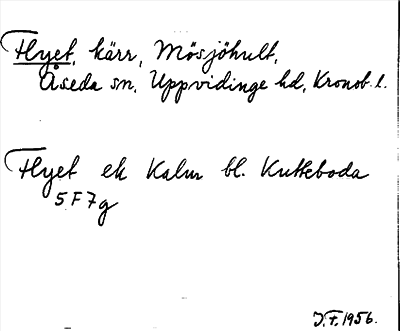 Flyet, kärr, Mösjöhult,
Åseda sn, Uppvidinge hd, Kronob. l.
Flyet ek Kalm bl. Kutteboda
5 F 7g
J.F. 1956.